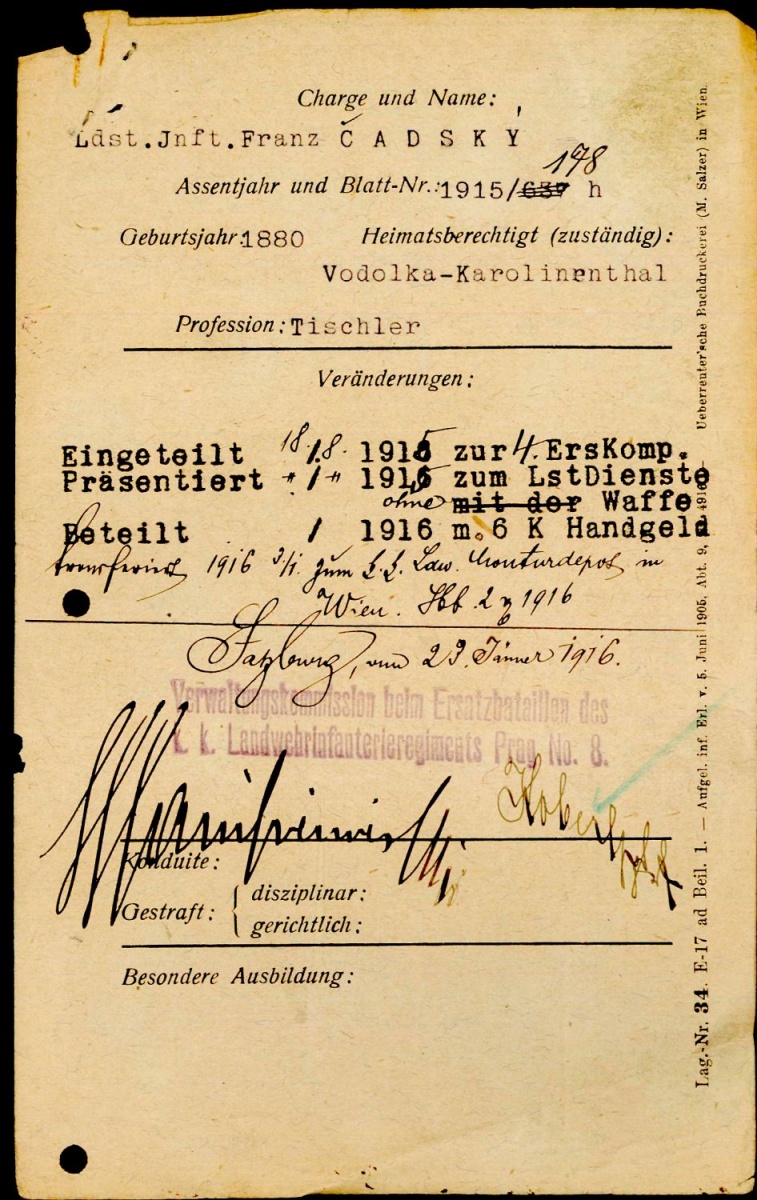 Charge und Name:
Ldst.Jnft.Franz ČADSKÝ
178
Assentjahr und Blatt-Nr.:1915/639 h
Geburtsjahr:1880 Heimatsberechtigt (zuständig):
Vodolka-Karolinenthal
Profession:Tischler
Veränderungen:
Eingeteilt 18./8. 1915 zur 4. ErsKomp.
Präsentiert " / " 1915 zum LstDienste
ohne mit der Waffe
Beteilt / 1916 m. 6 K Handgeld
transferiert 1916 3/1. zum k. k. Ldw. Monturdepot in
Wien. Hbb. 2 1916
Salzburg, am 23. Jänner 1916.
Verwaltungskommission beim Ersatzbataillon des
k. k. Landwehrinfanterieregiments Prag No. 8.
Konduite:
Gestraft: { disziplinar:
gerichtlich:
Besondere Ausbildung:
Lag.-Nr. 34. E-17 ad Beil. 1. — Aufgel. inf. Erl. v. 5. Juni 1905, Abt. 9, Ueberreuter'sche Buchdruckerei (M. Salzer) in Wien.